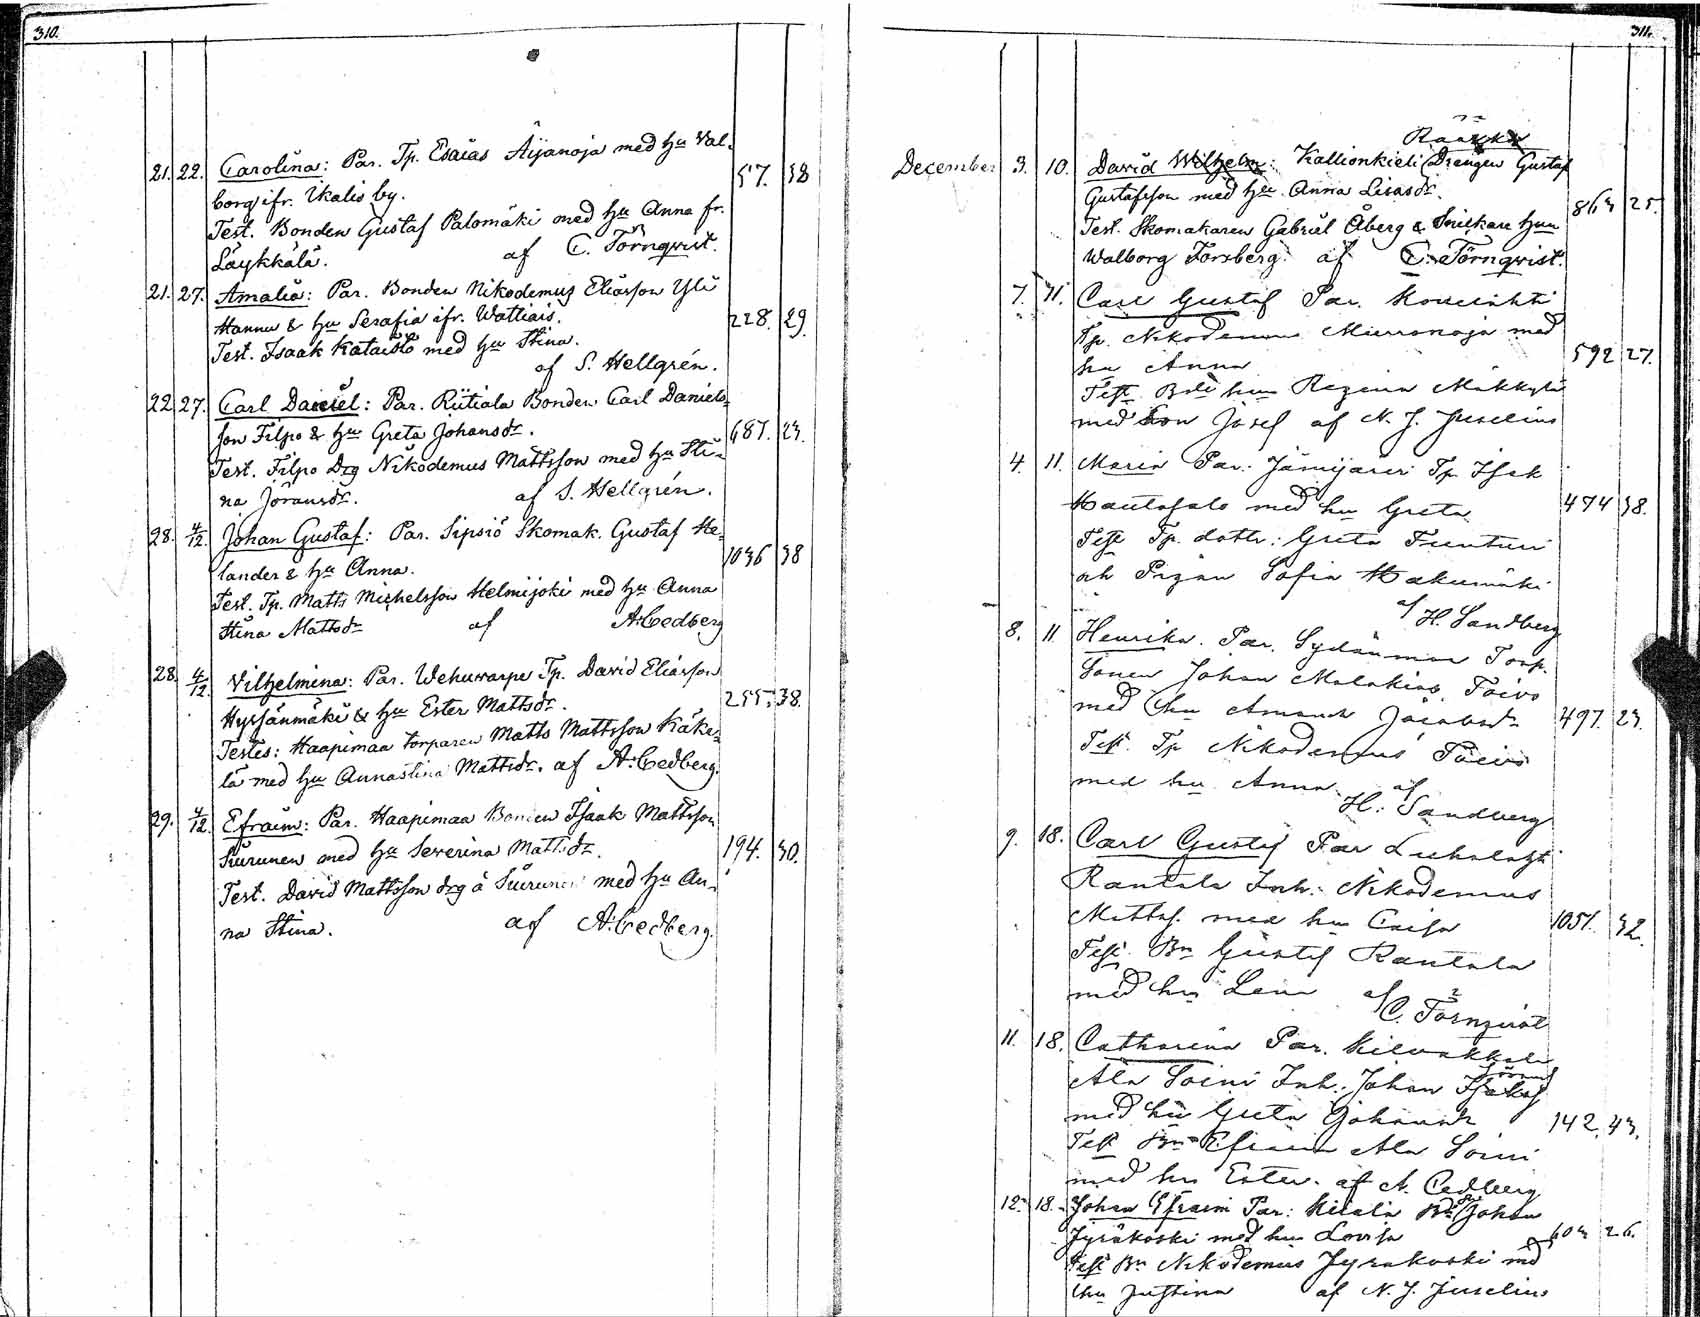 310.
21. 22. Carolina: Par. Tp. Esaias Äijänoja med hu Val-
borg ifr. Ikalis by. 57. 38
Test. Bonden Gustaf Palomäki med hu Anna fr.
Läykkälä. af C. Törnqvist.
21. 27. Amalia: Par. Bonden Nikodemus Eliasson Yli
Hannu & hu Serafia ifr. Wattiais. 228. 29.
Test. Isaak Kataisto med hu Stina.
af S. Hellgrén.
22. 27. Carl Daniel: Par. Riitiala Bonden Carl Daniels-
son Filpo & hu Greta Johansdr. 687. 23.
Test. Filpo Drg Nikodemus Mattsson med hu Sti-
na Jöransdr. af S. Hellgrén.
28. 4/12. Johan Gustaf: Par. Sipsiö Skomak. Gustaf He-
lander & hu Anna. 1036 38
Test. Tp. Matts Michelsson Helmijoki med hu Anna
Stina Mattsdr af A. Cedberg
28. 4/12. Vilhelmina: Par. Wehuwarpe Tp. David Eliasson
Hyssänmäki & hu Ester Mattsdr. 255. 38.
Testes: Haapimaa torparen Matts Mattsson Käke-
lä med hu Annastina Mattsdr. af A. Cedberg.
29. 4/12. Efraim: Par. Haapimaa Bonden Isaak Mattsson
Siurunen med hu Severina Mattsdr. 194. 30.
Test. David Mattsson drg å Siurunen med hu An-
na Stina. af A. Cedberg.
311.
December 3. 10. David Wilhelm: Kallionkieli Drengen Gustaf
Gustafsson med hu Anna Lisasdr. 863 25.
Test. Skomakaren Gabriel Åberg & Snickare hun
Walborg Forsberg. af C. Törnqvist.
7. 11. Carl Gustaf Par.
Tp. Nikodemus Mieronoja med
hu Anna 592 27.
Test. Bde hu Regina Mäkkylä
med son Josef af N. J. Juselius
4. 11. Maria Par. Jämijärvi Tp. Isak
Hautasalo med hu Greta 474 38.
Test Tp. dottr: Greta Tuuturi
och Pigan Sofia Hakumäki
af H. Sandberg
8. 11 Henrika. Par. Sydänmaa Torp.
Sonen Johan Malakias. Toivo
med hu Amanda Jacobsdr 497. 23.
Test. Tp Nikodemus Toivo
med hu Anna. af
H. Sandberg
9. 18. Carl Gustaf Par Luhalahti
Rantala Inh. Nikodemus
Mattss. med hu Caisa 1051. 32.
Test. Bn Gustaf Rantala
med hu Lena af
C. Törnqvist
11. 18. Catharina Par. Kilvakkala
Ala Soini Inh. Johan
med hu Greta Johansdr 142. 43.
Test Bn Efraim Ala Soini
med hu Ester. af A. Cedberg
12. 18. Johan Efraim Par: Bn Johan
Jyräkoski med hu Lovisa 603 26.
Test Bn Nikodemus Jyräkoski md
hu Justina af N. J. Juselius